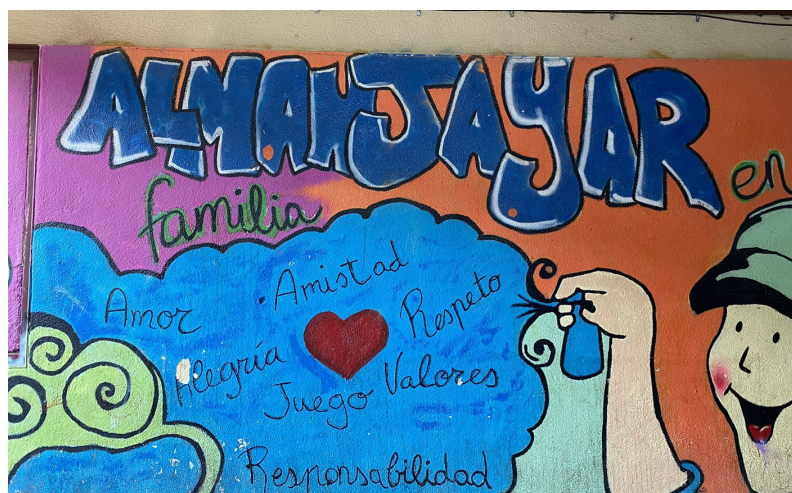 ALMANJAYAR en
familia
Amistad
Amor
Respeto
Alegría
Juego Valores
Responsabilidad